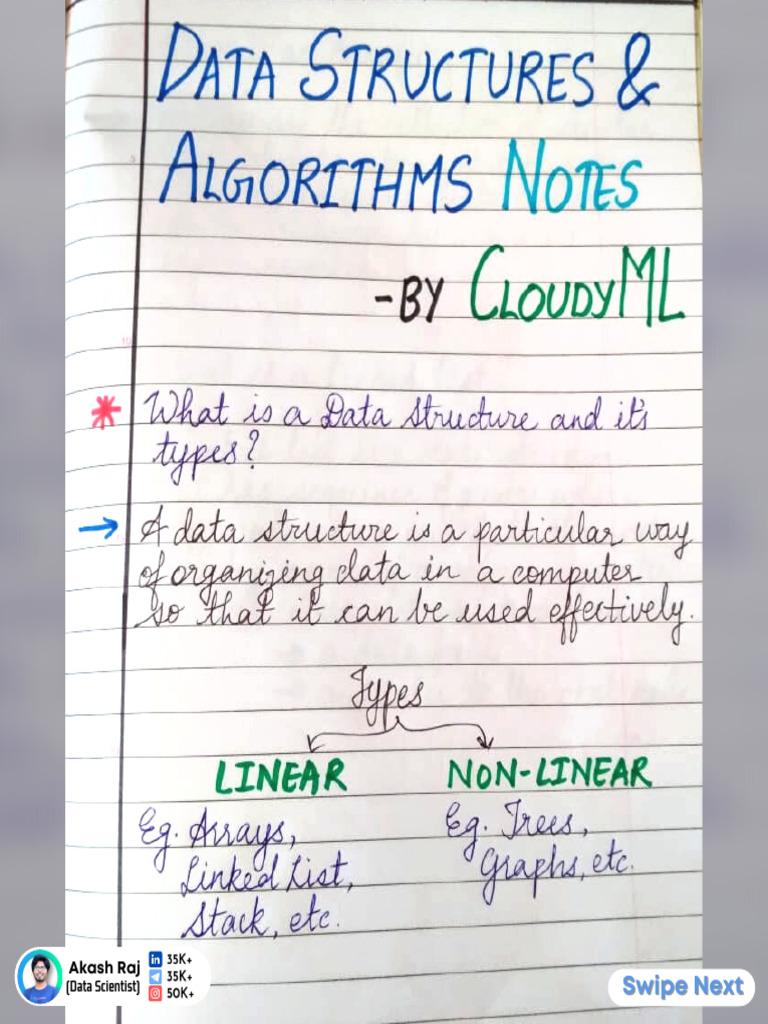 DATA STRUCTURES &
ALGORITHMS NOTES
-BY CLOUDYML
* What is a Data Structure and it's
types?
→ A data structure is a particular way
of organizing data in a computer
so that it can be used effectively.
Types
LINEAR NON-LINEAR
Eg. Arrays, Eg. Trees,
Linked List, Graphs, etc.
Stack, etc.
Akash Raj
(Data Scientist)
in 35K+
35K+
50K+
Swipe Next